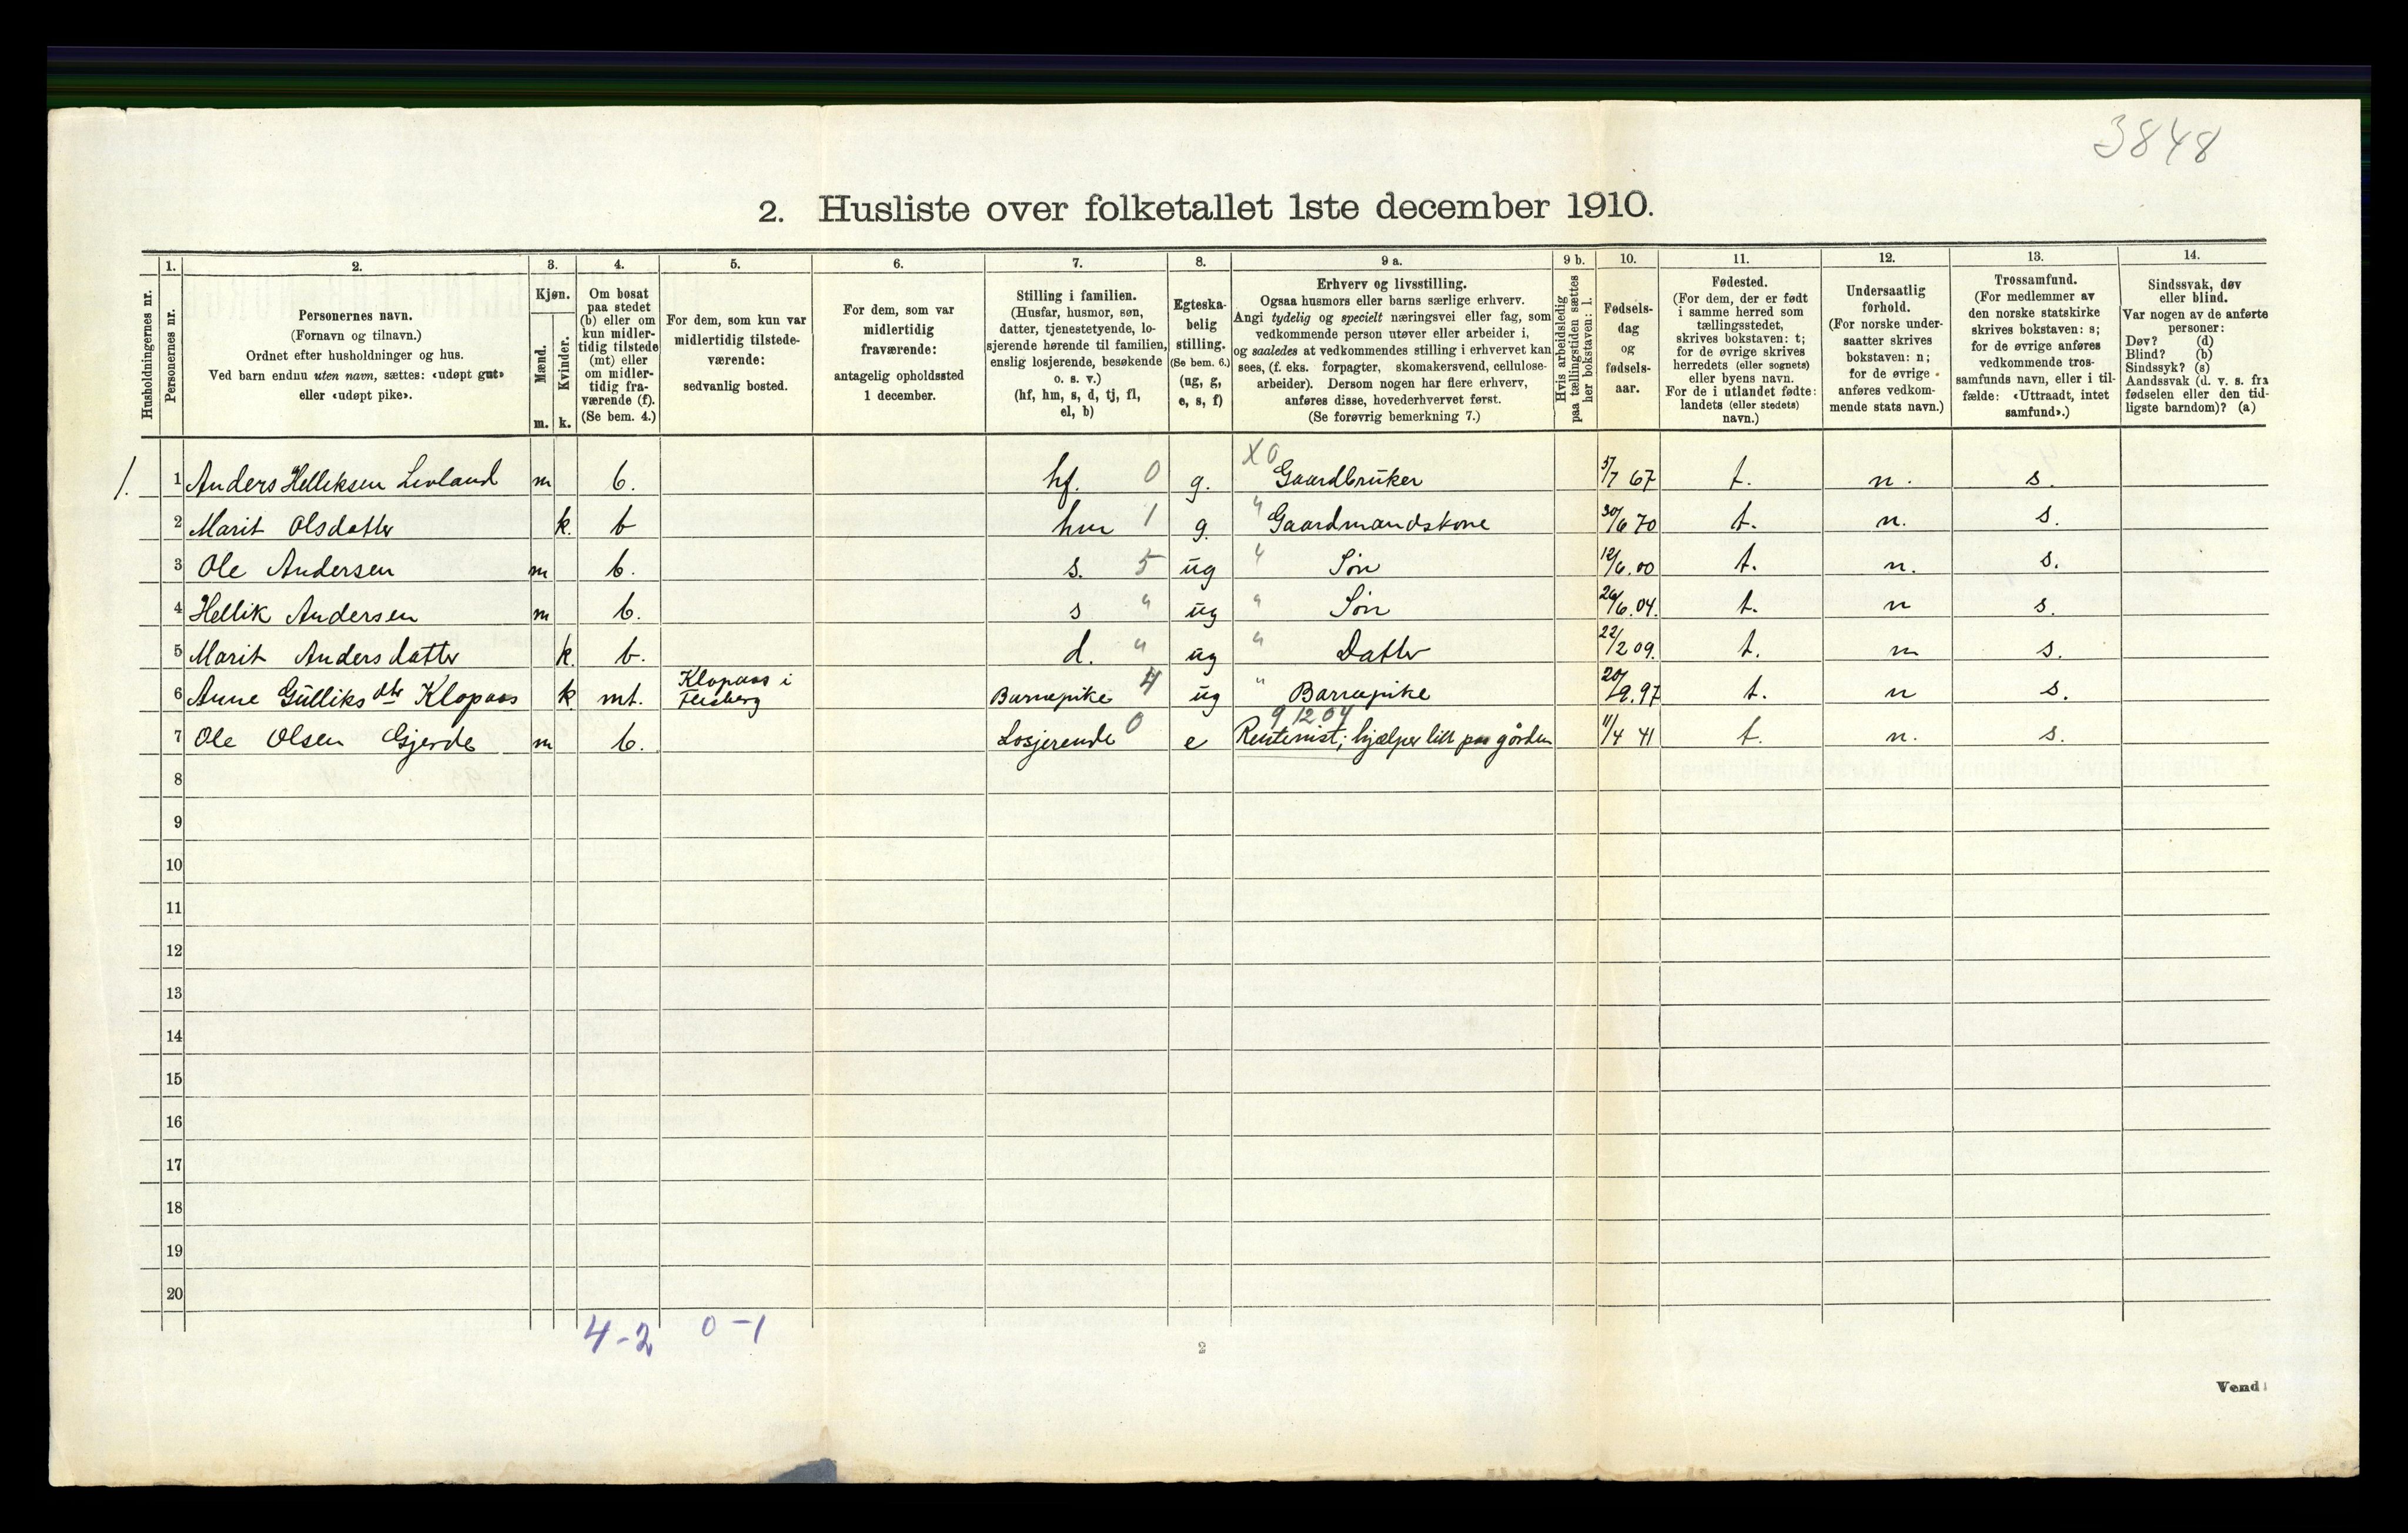 3848
2. Husliste over folketallet 1ste december 1910.
Husholdningernes nr.
1. Personernes nr.
2. Personernes navn.
(Fornavn og tilnavn.)
Ordnet efter husholdninger og hus.
Ved barn endnu uten navn, sættes: «udøpt gut»
eller «udøpt pike».
3. Kjøn.
Mænd. m.
Kvinder. k.
4. Om bosat
paa stedet
(b) eller om
kun midler-
tidig tilstede
(mt) eller
om midler-
tidig fra-
værende (f).
(Se bem. 4.)
5. For dem, som kun var
midlertidig tilstede-
værende:
sedvanlig bosted.
6. For dem, som var
midlertidig
fraværende:
antagelig opholdssted
1 december.
7. Stilling i familien.
(Husfar, husmor, søn,
datter, tjenestetyende, lo-
sjerende hørende til familien,
enslig losjerende, besøkende
o. s. v.)
(hf, hm, s, d, tj, fl,
el, b)
8. Egteska-
belig
stilling.
(Se bem. 6.)
(ug, g,
e, s, f)
9 a. Erhverv og livsstilling.
Ogsaa husmors eller barns særlige erhverv.
Angi tydelig og specielt næringsvei eller fag, som
vedkommende person utøver eller arbeider i,
og saaledes at vedkommendes stilling i erhvervet kan
sees, (f. eks. forpagter, skomakersvend, cellulose-
arbeider). Dersom nogen har flere erhverv,
anføres disse, hovederhvervet først.
(Se forøvrig bemerkning 7.)
9 b. Hvis arbeidsledig
paa tællingstiden sættes
her bokstaven: l.
10. Fødsels-
dag
og
fødsels-
aar.
11. Fødested.
(For dem, der er født
i samme herred som
tællingsstedet,
skrives bokstaven: t;
for de øvrige skrives
herredets (eller sognets)
eller byens navn.
For de i utlandet fødte:
landets (eller stedets)
navn.)
12. Undersaatlig
forhold.
(For norske under-
saatter skrives
bokstaven: n;
for de øvrige
anføres vedkom-
mende stats navn.)
13. Trossamfund.
(For medlemmer av
den norske statskirke
skrives bokstaven: s;
for de øvrige anføres
vedkommende tros-
samfunds navn, eller i til-
fælde: «Uttraadt, intet
samfund».)
14. Sindssvak, døv
eller blind.
Var nogen av de anførte
personer:
Døv? (d)
Blind? (b)
Sindssyk? (s)
Aandssvak (d. v. s. fra
fødselen eller den tid-
ligste barndom)? (a)
X 0
1. 1 Anders Helliksen Levland m b. hf. 0 g. Gaardbruker 5/7 67 t. n. s.
2 Marit Olsdatter k. b hm 1 g. " Gaardmandskone 30/6 70 t. n. s.
3 Ole Andersen m b. s. 5 ug " Søn 12/6.00 t. n. s.
4 Hellik Andersen m b. s " ug " Søn 26/6.04. t. n s.
5 Marit Andersdatter k. b. d. " ug " Datter 22/2 09. t. n s.
6 Anne Gulliks dtr Klopaas k mt. Klopaas i
Flesberg Barnepike 4 ug " Barnepike 20/9.97 t. n s.
9 12 04
7 Ole Olsen Gjerde m b. Losjerende 0 e Rentenist; hjælper litt paa gården 11/4 41 t. n. s.
8
9
10
11
12
13
14
15
16
17
18
19
20
4-2 0-1
2
Vend